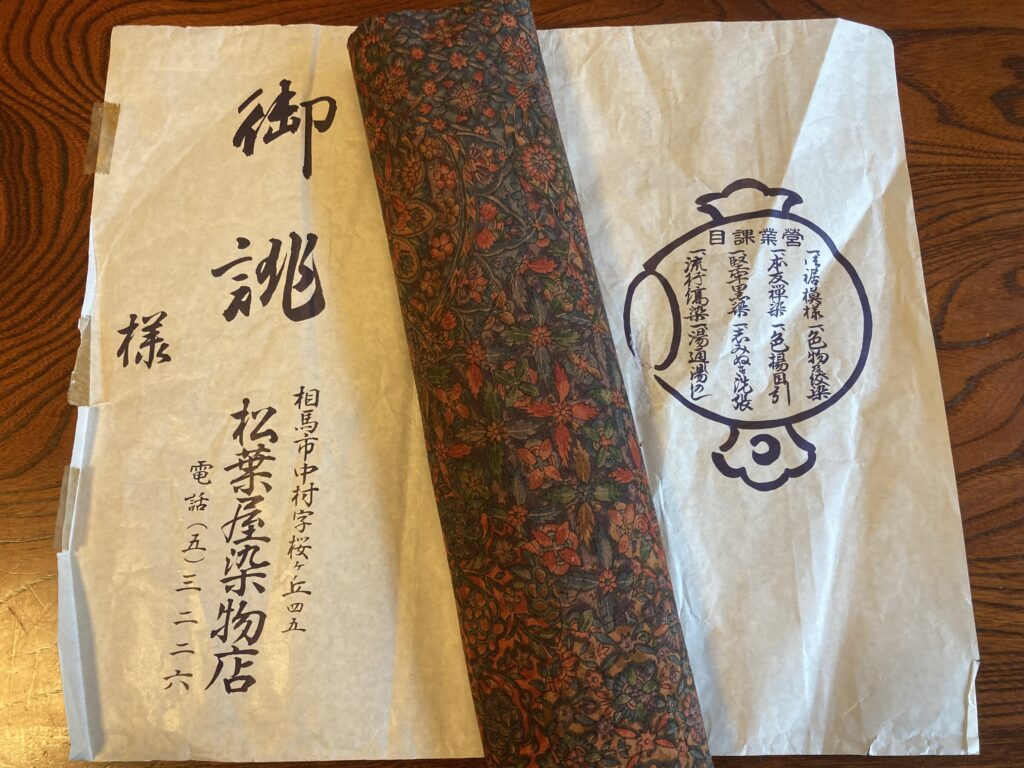 御誂
相馬市中村字桜ヶ丘四五
松葉屋染物店
電話(五)三二二六
様
営業課目
一御裾模様一色物
一本友禅染一色揚目引
一堅牢黒染一志みぬき洗張
一流行縞染一湯通湯のし